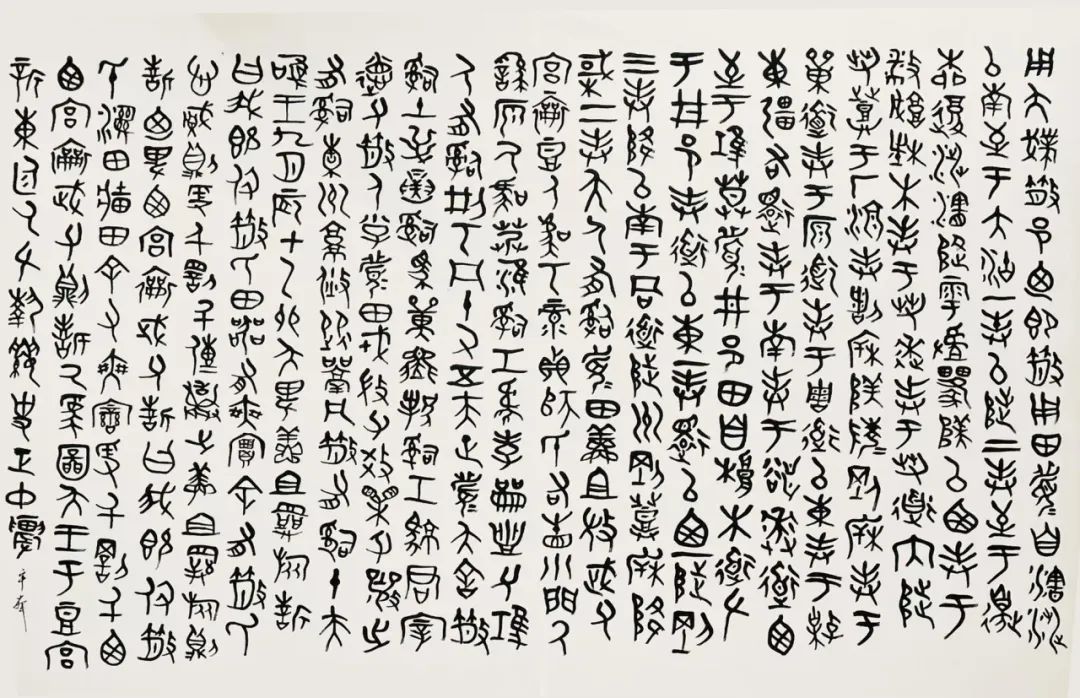 用夨𢦟散邑乃即散用田眉自瀗涉
以南至于大沽一奉以陟二奉至于邊
柳復涉瀗陟雩𨻷以西奉于
播城楮木奉于芻逨奉于芻道內陟
芻登于厂湶奉割𣏌𨻷陵剛𣏌奉于
單道奉于原道奉于周道以東奉于
東疆右還奉于眉道以南奉于逨道以西
至于堆莫眉井邑田自根木道左至
于井邑奉道以東一奉還以西一奉陟剛
三奉降以南奉于同道陟州剛登𣏌降
棫二奉夨人有司眉田鮮且微武父西
宮襄豆人虞丂彔貞師氏右眚小門人
繇原人虞艿淮司工虎孝開豐父堆
人有司刑丂凡十又五夫正眉夨舍散
田司土逆寅司馬單邦人司工駷君宰
德父散人小子眉田戎微父教父襄之
有司橐州就焂從凡散有司十夫
唯王九月辰才乙卯夨卑鮮且旅誓
曰我既付散氏田器有爽實余有散氏
心賊則爰千罰千傳棄之鮮且旅則
誓乃卑西宮襄武父誓曰我既付散
氏濕田牆田余又爽變爰千罰千
西宮襄武父則誓厥為圖夨王于豆宮
新東廷厥左執要史正中農